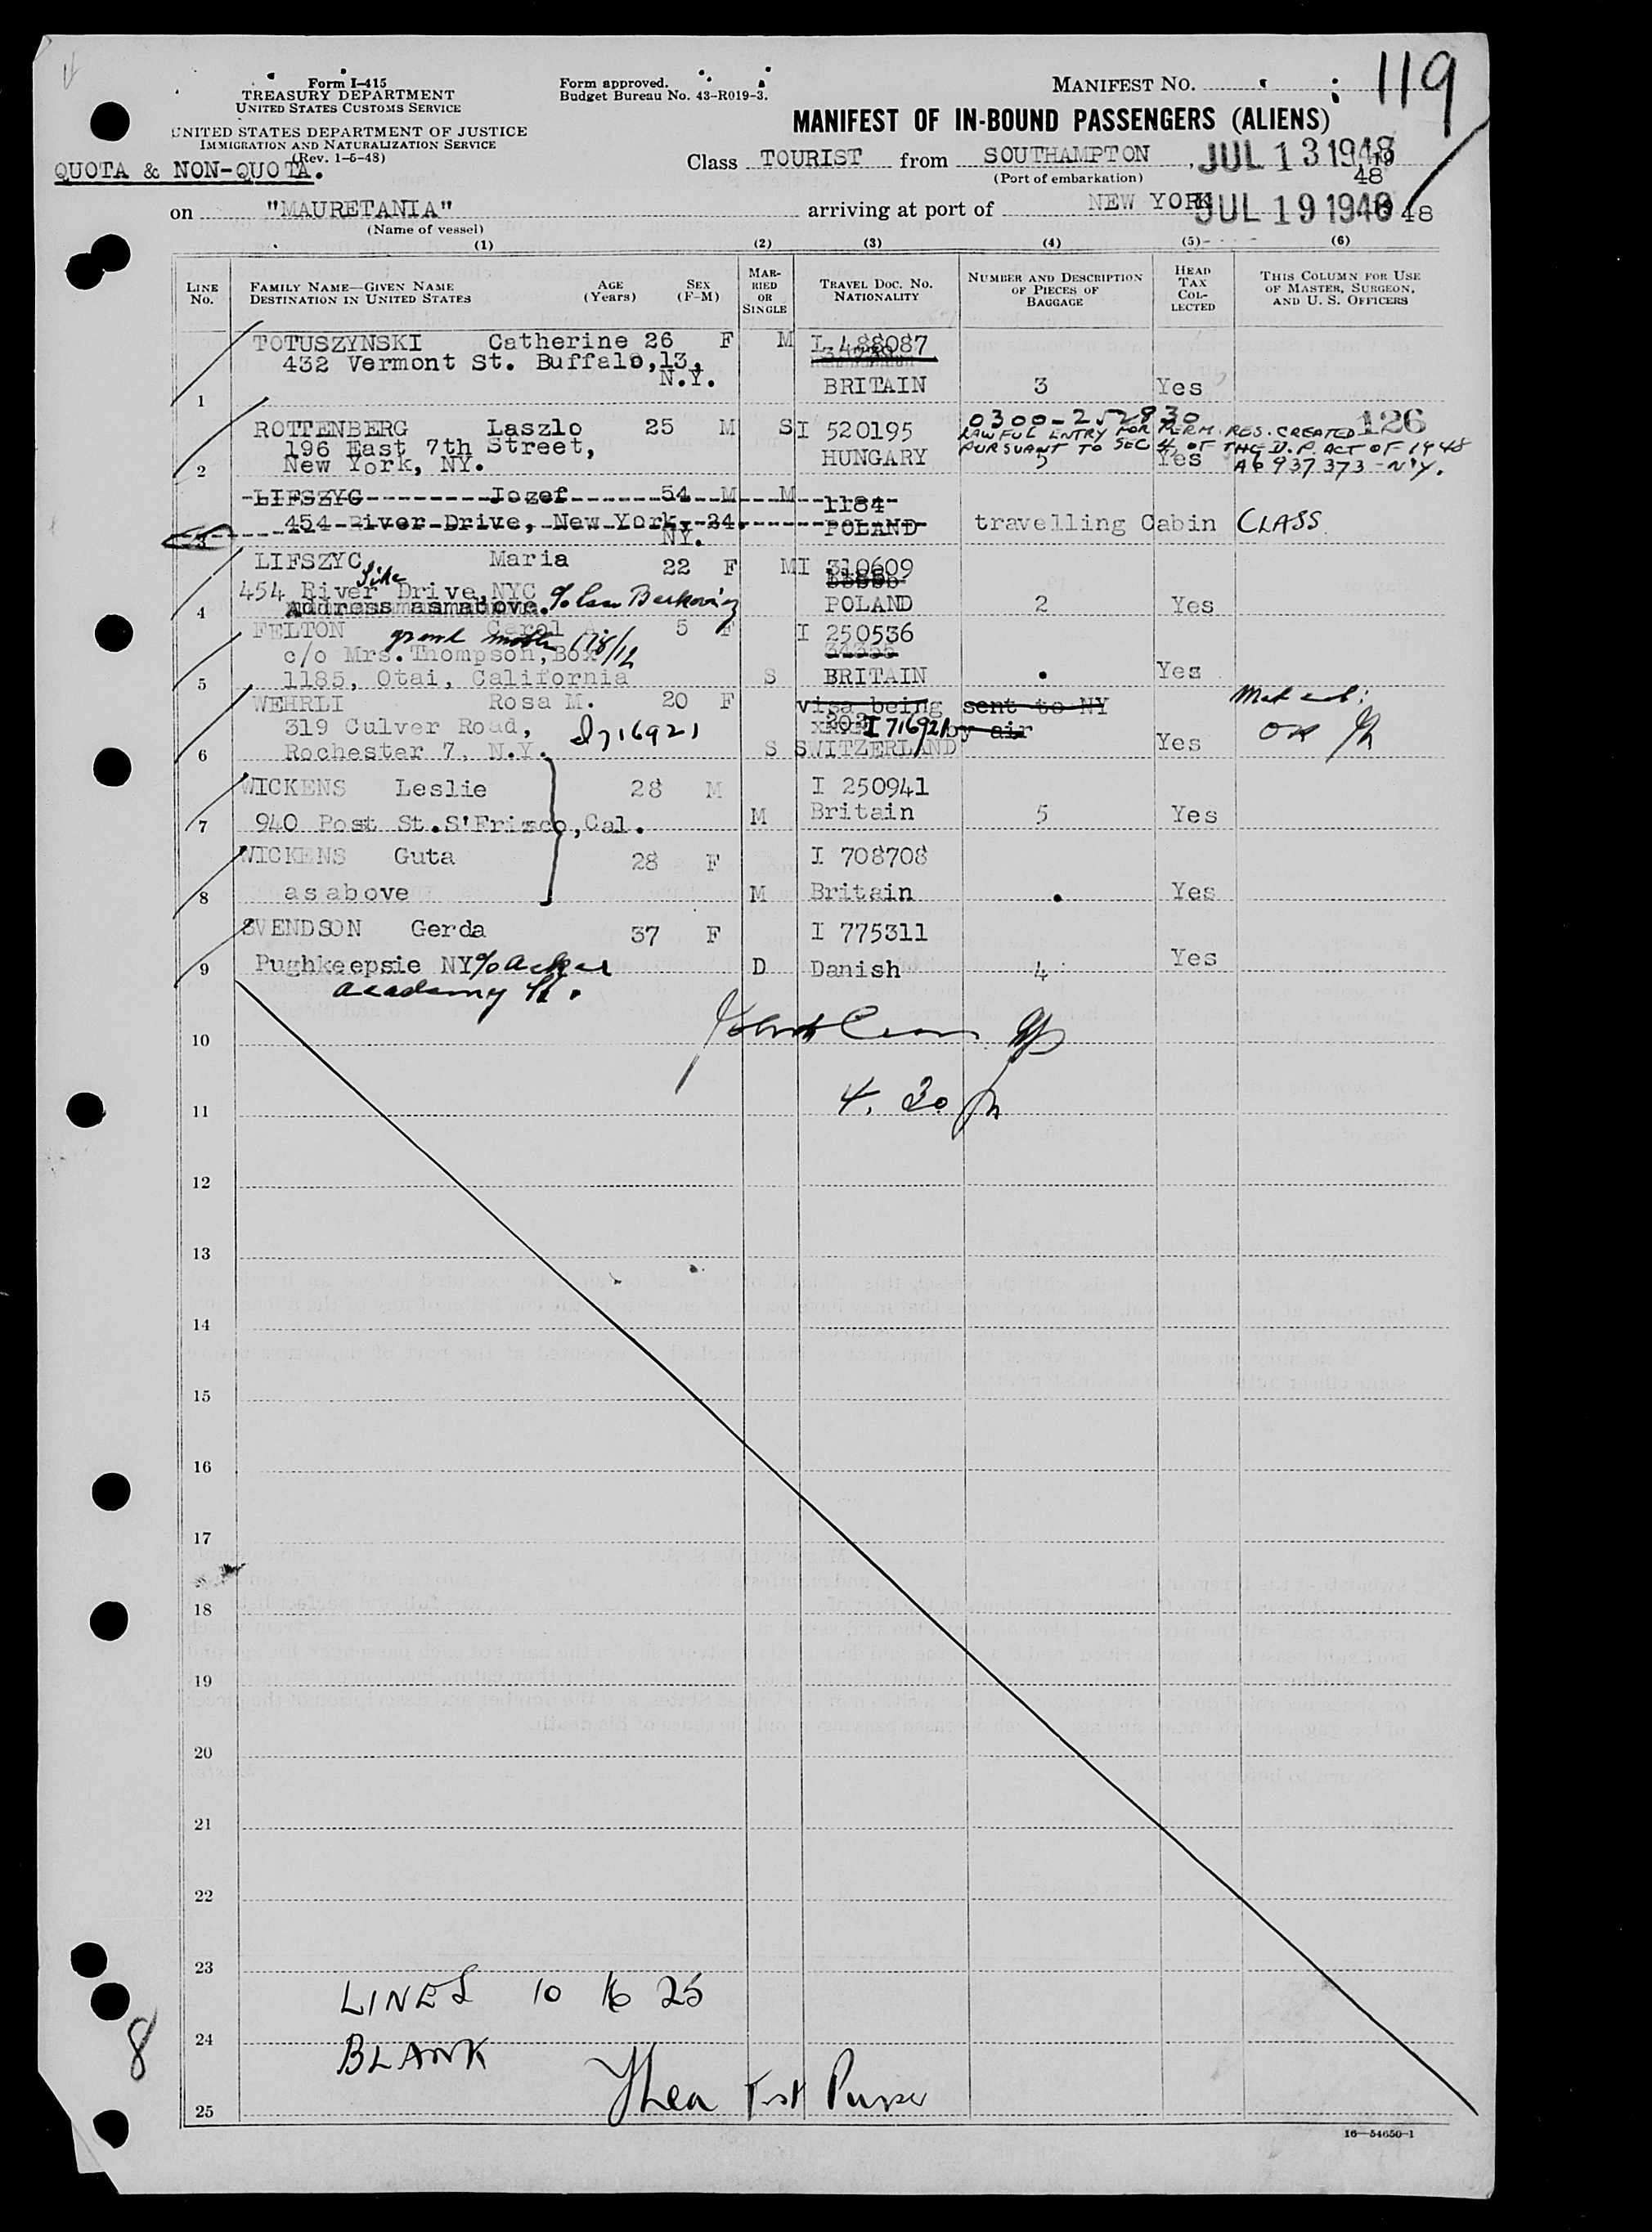 119
Form I-415
TREASURY DEPARTMENT
UNITED STATES CUSTOMS SERVICE
UNITED STATES DEPARTMENT OF JUSTICE
IMMIGRATION AND NATURALIZATION SERVICE
(Rev. 1-5-48)
QUOTA & NON-QUOTA.
Form approved.
Budget Bureau No. 43-R019-3.
MANIFEST NO.
MANIFEST OF IN-BOUND PASSENGERS (ALIENS)
Class TOURIST from SOUTHAMPTON, JUL 13 1948 19 48
(Port of embarkation)
on "MAURETANIA" arriving at port of NEW YORK JUL 19 1948 48
(Name of vessel)
(1) (2) (3) (4) (5) (6)
LINE No. FAMILY NAME—GIVEN NAME DESTINATION IN UNITED STATES AGE (Years) SEX (F-M) MARRIED OR SINGLE TRAVEL DOC. NO. NATIONALITY NUMBER AND DESCRIPTION OF PIECES OF BAGGAGE HEAD TAX COLLECTED THIS COLUMN FOR USE OF MASTER, SURGEON, AND U. S. OFFICERS
TOTUSZYNSKI Catherine 26 F M I 488087
432 Vermont St. Buffalo,13,
N.Y.
1 BRITAIN 3 Yes
0300-252830 126
ROTTENBERG Laszlo 25 M S I 520195 LAWFUL ENTRY FOR PERM. RES. CREATED
196 East 7th Street, PURSUANT TO SEC 4 OF THE D.P. ACT OF 1948
2 New York, NY. HUNGARY 5 Yes A6 937 373 - N.Y.
LIFSZYC Jozef 54 M M 1184
3 454 River Drive, New York, 24. POLAND travelling Cabin CLASS
NY.
LIFSZYC Maria 22 F M I 310609
454 River Side Drive, NYC
4 Address as above. POLAND 2 Yes
FELTON Carol A 5 F I 250536
grand mother
c/o Mrs. Thompson, Box 34355
5 1185, Otai, California S BRITAIN Yes
WEHRLI Rosa M. 20 F visa being sent to NY
319 Culver Road, I 716921 I 716921 by air
6 Rochester 7, N.Y. S SWITZERLAND Yes OK
WICKENS Leslie 28 M I 250941
7 940 Post St.S'Frizco,Cal. M Britain 5 Yes
WICKENS Guta 28 F I 708708
8 as above M Britain Yes
SVENDSON Gerda 37 F I 775311
9 Pughkeepsie NY % Acker D Danish 4 Yes
Academy St.
10
11 4. 30
12
13
14
15
16
17
18
19
20
21
22
23
LINES 10 to 25
24
BLANK
8
25
16—54650-1